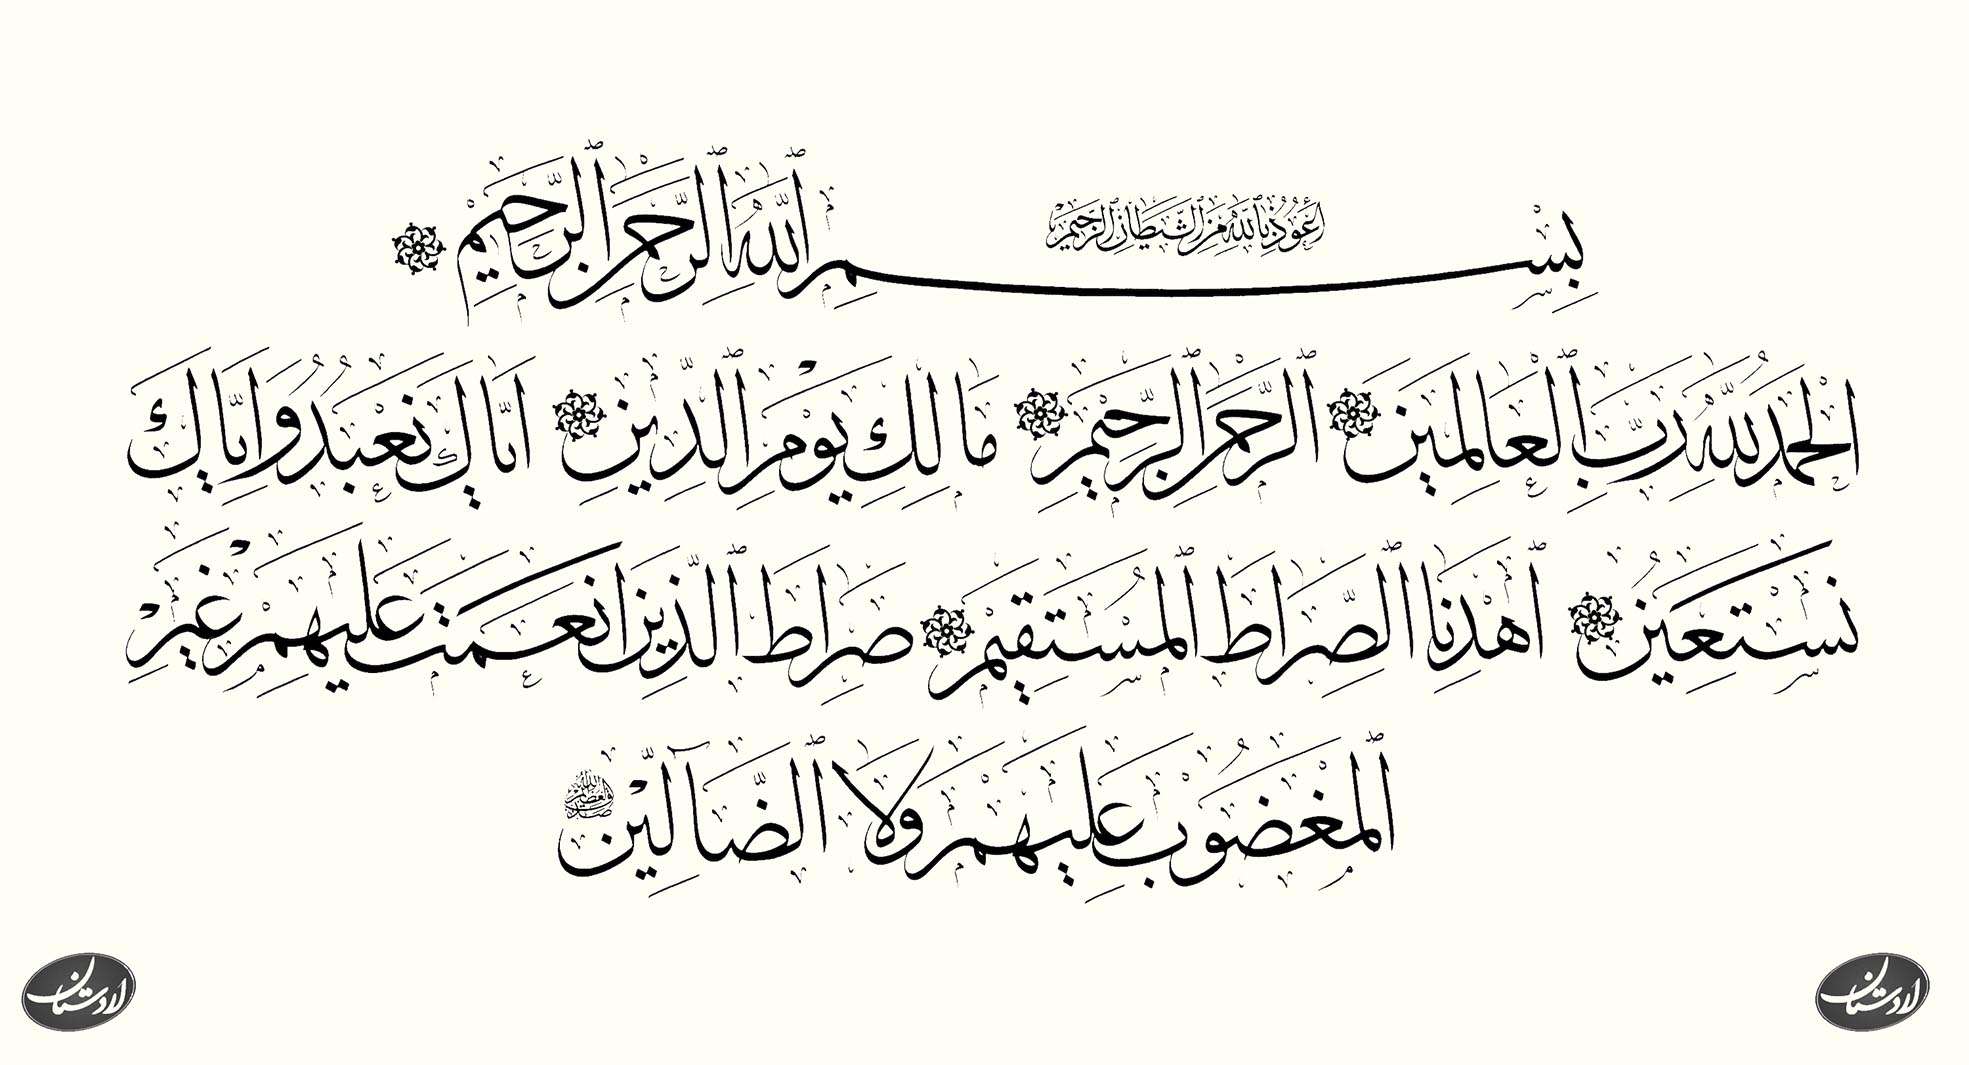 أعوذ بالله من الشيطان الرجيم
بِسْمِ ٱللَّهِ ٱلرَّحْمٰنِ ٱلرَّحِيْمِ
الْحَمْدُ لِلَّهِ رَبِّ ٱلْعَالَمِيَن ٱلرَّحْمٰنِ ٱلرَّحِيْمِ مَالِكِ يَوْمِ ٱلدِّينِ اِيَّاكَ نَعْبُدُ وَاِيَّاكَ
نَسْتَعِيْنُ ٱهْدِنَا ٱلصِّرَاطَ ٱلْمُسْتَقِيْمَ صِرَاطَ ٱلَّذِيْنَ اَنْعَمْتَ عَلَيْهِمْ غَيْرِ
ٱلْمَغْضُوْبِ عَلَيْهِمْ وَلَا ٱلضَّآلِّيْنَ
صدق الله العظيم
لادستان
لادستان